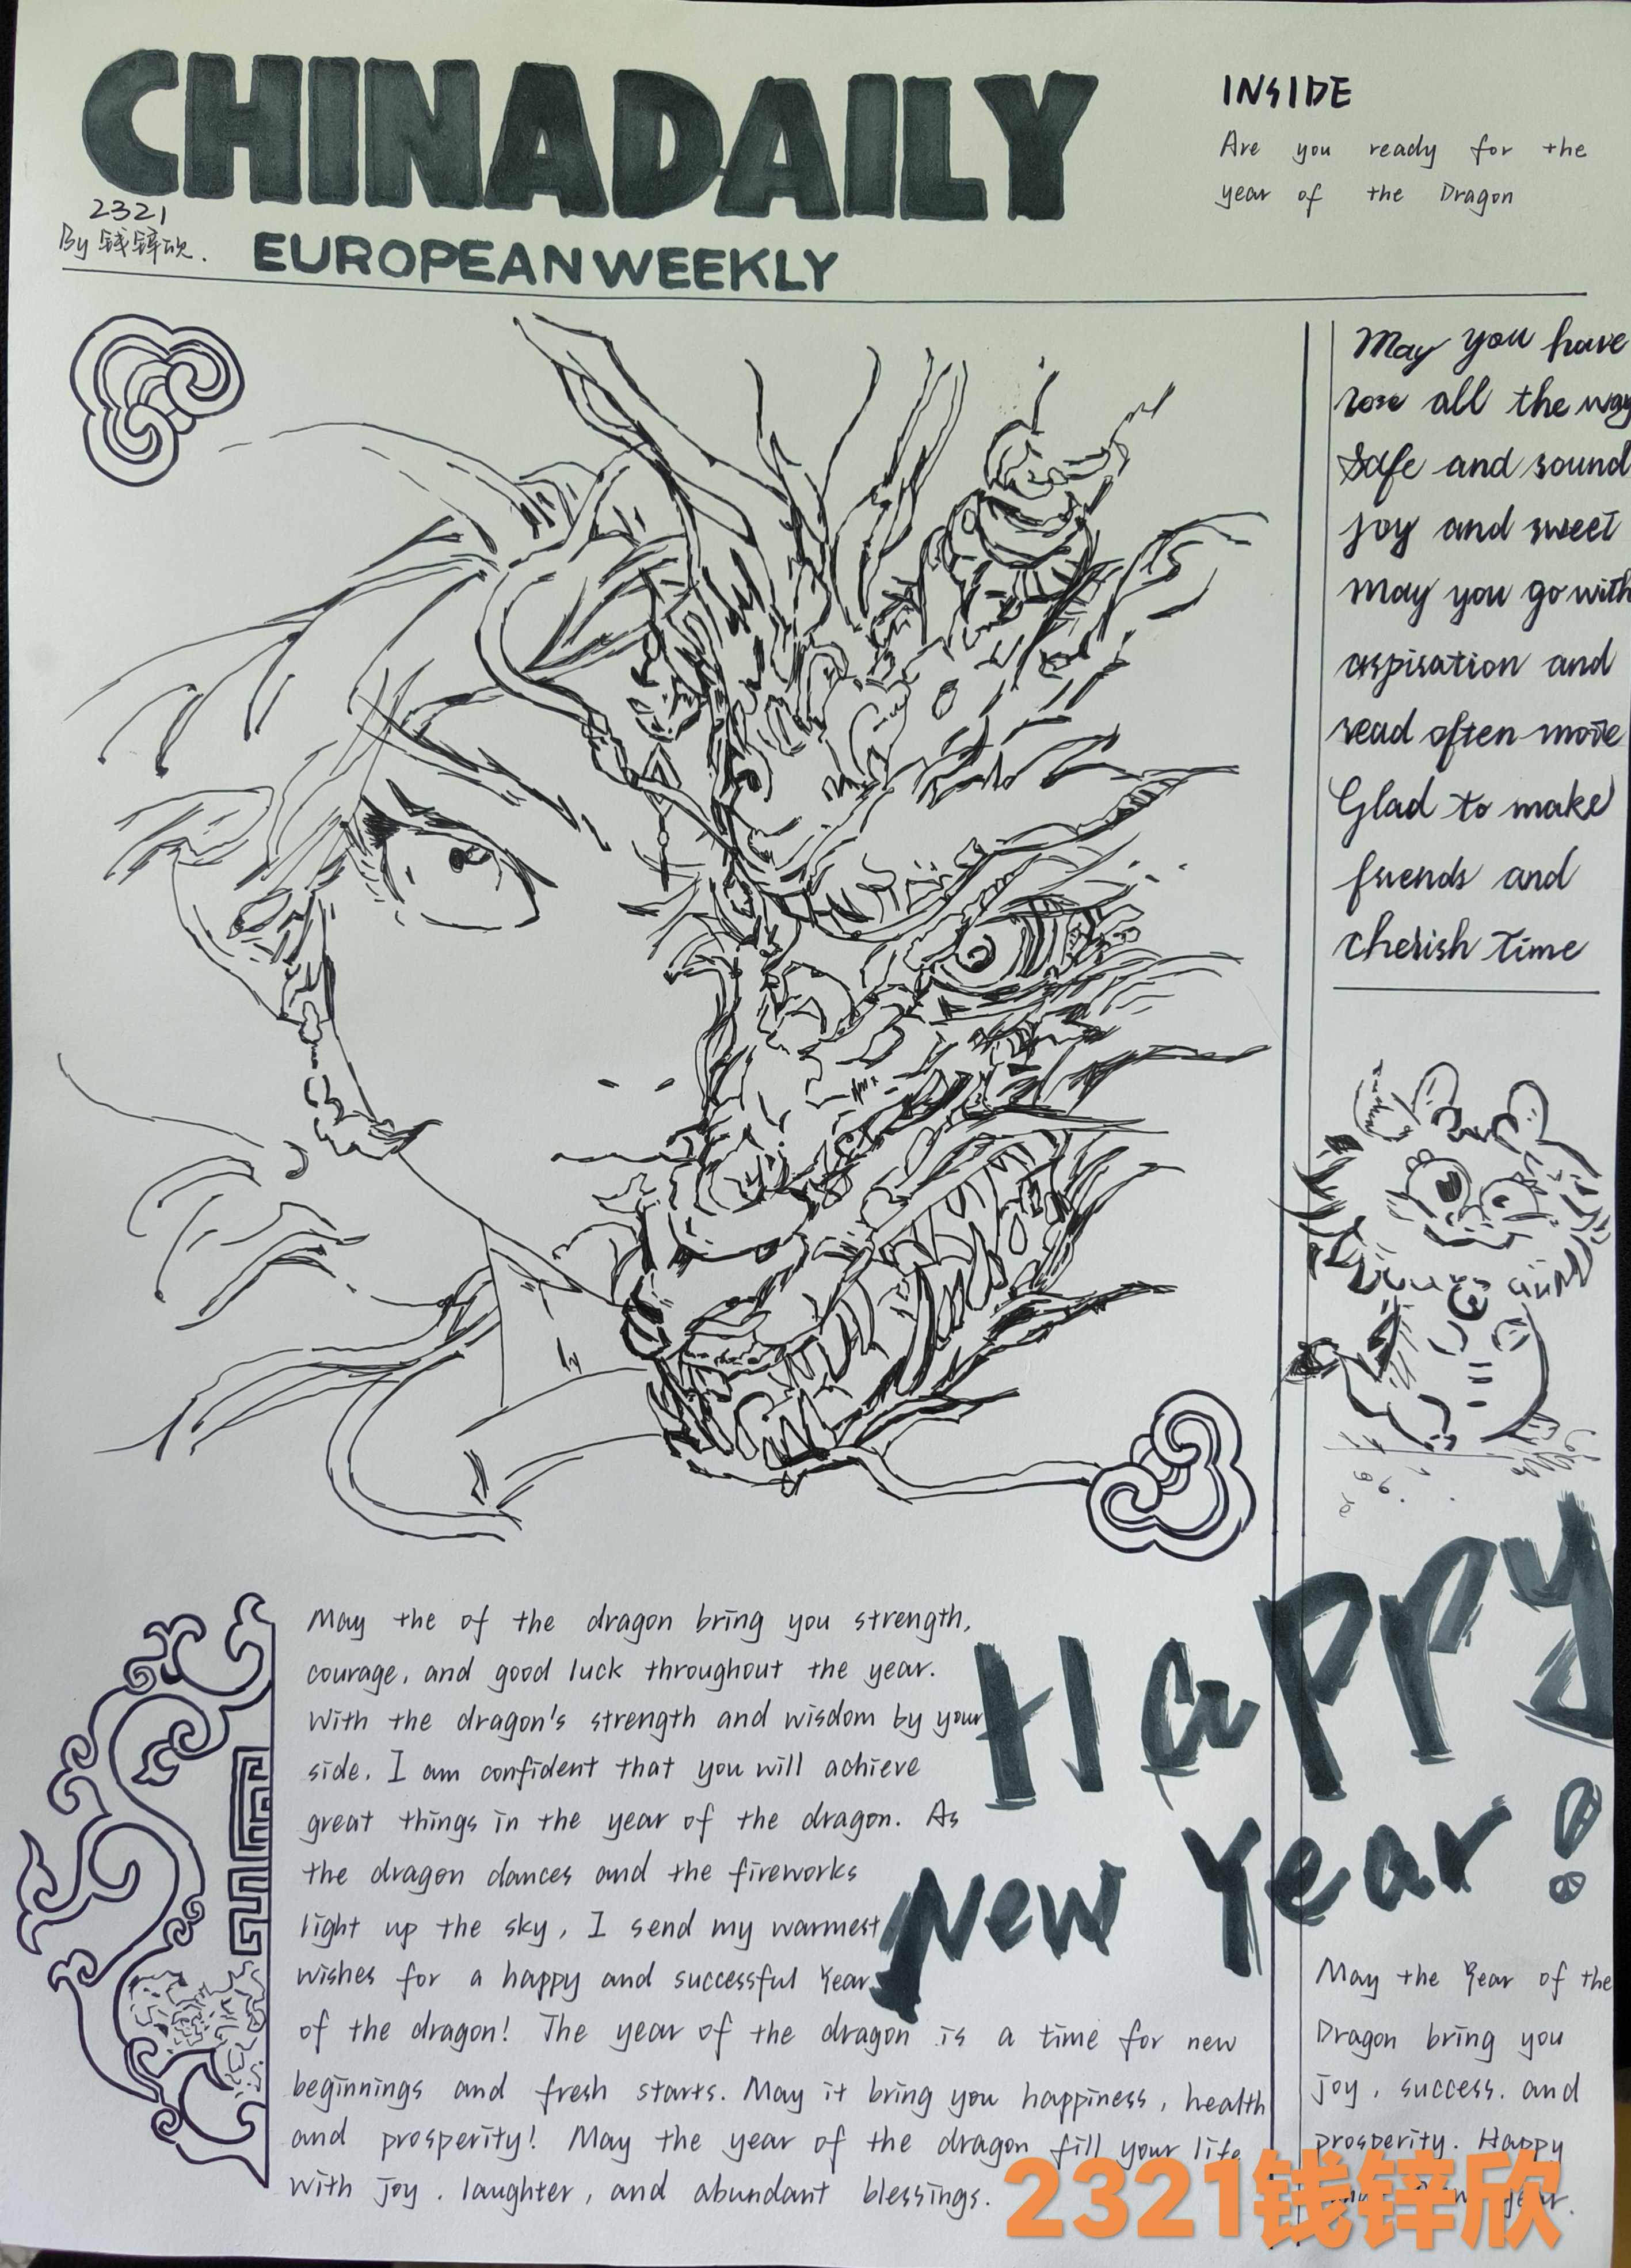 CHINADAILY
2321
By 钱锌欣.
EUROPEAN WEEKLY
INSIDE
Are you ready for the
year of the Dragon
May you have
rose all the way
Safe and sound
joy and sweet
May you go with
aspiration and
read often more
Glad to make
friends and
cherish time
HaPPY
New Year!
May the of the dragon bring you strength,
courage, and good luck throughout the year.
With the dragon's strength and wisdom by your
side. I am confident that you will achieve
great things in the year of the dragon. As
the dragon dances and the fireworks
light up the sky, I send my warmest
wishes for a happy and successful Year
of the dragon! The year of the dragon is a time for new
beginnings and fresh starts. May it bring you happiness, health
and prosperity! May the year of the dragon fill your life
with joy. laughter, and abundant blessings.
May the Year of the
Dragon bring you
joy, success. and
prosperity. Happy
year.
2321钱锌欣